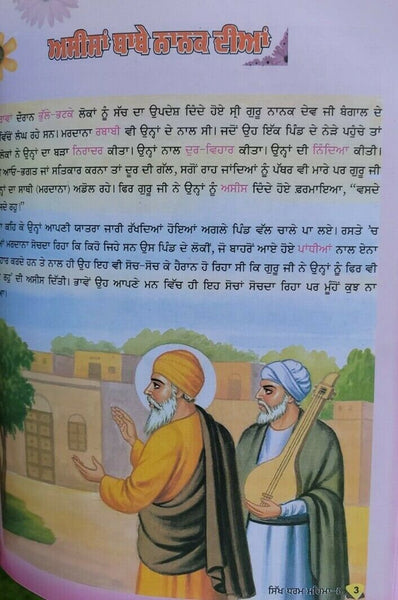 ਅਸੀਸਾਂ ਬਾਬੇ ਨਾਨਕ ਦੀਆਂ
ਦੌਰਾਨ ਭੁੱਲੇ-ਭਟਕੇ ਲੋਕਾਂ ਨੂੰ ਸੱਚ ਦਾ ਉਪਦੇਸ਼ ਦਿੰਦੇ ਹੋਏ ਸ੍ਰੀ ਗੁਰੂ ਨਾਨਕ ਦੇਵ ਜੀ ਬੰਗਾਲ ਦੇ
ਵਿੱਚੋਂ ਲੰਘ ਰਹੇ ਸਨ। ਮਰਦਾਨਾ ਰਬਾਬੀ ਵੀ ਉਨ੍ਹਾਂ ਦੇ ਨਾਲ ਸੀ। ਜਦੋਂ ਉਹ ਇੱਕ ਪਿੰਡ ਦੇ ਨੇੜੇ ਪਹੁੰਚੇ ਤਾਂ
ਲੋਕਾਂ ਨੇ ਉਨ੍ਹਾਂ ਦਾ ਬੜਾ ਨਿਰਾਦਰ ਕੀਤਾ। ਉਨ੍ਹਾਂ ਨਾਲ ਦੁਰ-ਵਿਹਾਰ ਕੀਤਾ। ਉਨ੍ਹਾਂ ਦੀ ਨਿੰਦਿਆ ਕੀਤੀ।
ਆਓ-ਭਗਤ ਜਾਂ ਸਤਿਕਾਰ ਕਰਨਾ ਤਾਂ ਦੂਰ ਦੀ ਗੱਲ, ਸਗੋਂ ਰਾਹ ਜਾਂਦਿਆਂ ਨੂੰ ਪੱਥਰ ਵੀ ਮਾਰੇ ਪਰ ਗੁਰੂ ਜੀ
ਦਾ ਸਾਥੀ (ਮਰਦਾਨਾ) ਅਡੋਲ ਰਹੇ। ਫਿਰ ਗੁਰੂ ਜੀ ਨੇ ਉਨ੍ਹਾਂ ਨੂੰ ਅਸੀਸ ਦਿੰਦੇ ਹੋਏ ਫ਼ਰਮਾਇਆ, “ਵਸਦੇ
ਰਹੁ।”
ਕਹਿ ਕੇ ਉਨ੍ਹਾਂ ਆਪਣੀ ਯਾਤਰਾ ਜਾਰੀ ਰੱਖਦਿਆਂ ਹੋਇਆਂ ਅਗਲੇ ਪਿੰਡ ਵੱਲ ਚਾਲੇ ਪਾ ਲਏ। ਰਸਤੇ 'ਚ
ਮਰਦਾਨਾ ਸੋਚਦਾ ਰਿਹਾ ਕਿ ਕਿਹੋ ਜਿਹੇ ਸਨ ਉਸ ਪਿੰਡ ਦੇ ਲੋਕੀਂ, ਜੋ ਬਾਹਰੋਂ ਆਏ ਹੋਏ ਪਾਂਧੀਆਂ ਨਾਲ ਏਨਾ
ਕਰਦੇ ਹਨ ਤੇ ਨਾਲ ਹੀ ਉਹ ਇਹ ਵੀ ਸੋਚ-ਸੋਚ ਕੇ ਹੈਰਾਨ ਹੋ ਰਿਹਾ ਸੀ ਕਿ ਗੁਰੂ ਜੀ ਨੇ ਉਨ੍ਹਾਂ ਨੂੰ ਫਿਰ ਵੀ
ਰਹੁ' ਦੀ ਅਸੀਸ ਦਿੱਤੀ। ਭਾਵੇਂ ਉਹ ਆਪਣੇ ਮਨ ਵਿੱਚ ਹੀ ਇਹ ਸੋਚਾਂ ਸੋਚਦਾ ਰਿਹਾ ਪਰ ਮੂੰਹੋਂ ਕੁਝ ਨਾ
ਸਿੱਖ ਧਰਮ ਮਹਿਮਾ 3